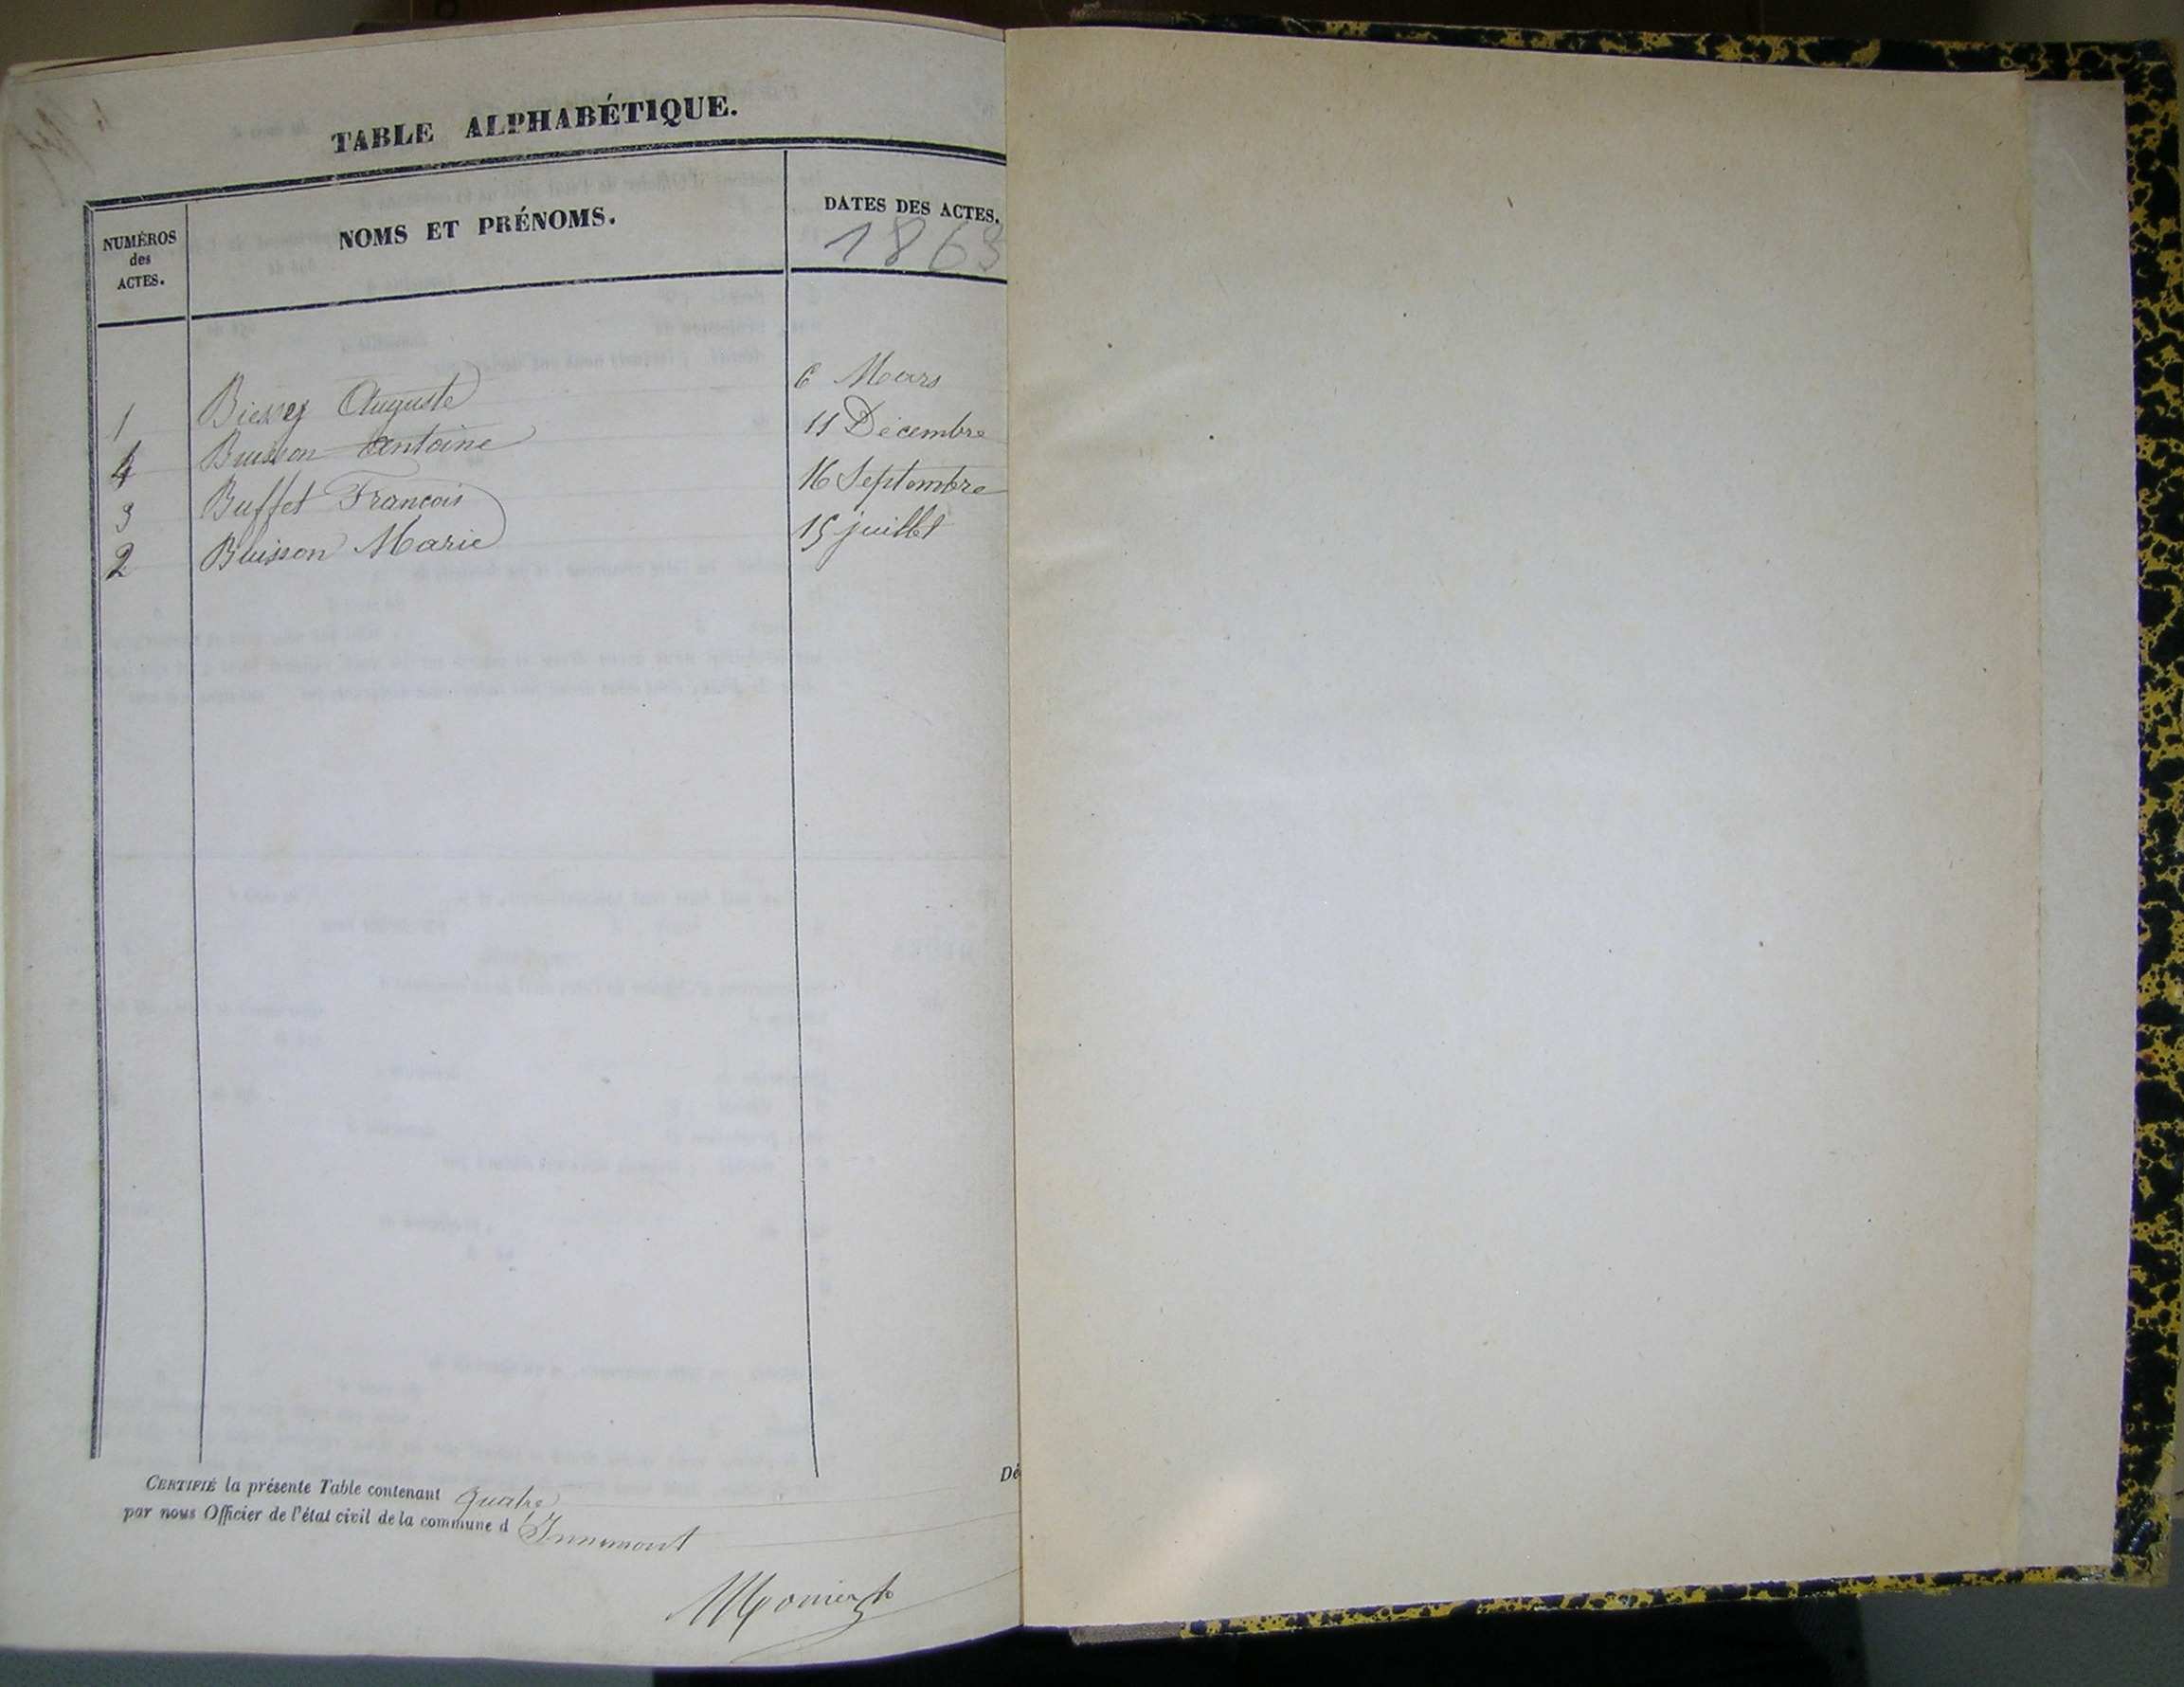 TABLE ALPHABÉTIQUE.
NUMÉROS des ACTES.
NOMS ET PRÉNOMS.
DATES DES ACTES.
1863
1 Auguste 6 Mars
4 Buisson Antoine 11 Décembre
3 Buffet Francois 16 Septembre
2 Buisson Marie 15 juillet
CERTIFIÉ la présente Table contenant quatre
Dé
par nous Officier de l'état civil de la commune d Innimont